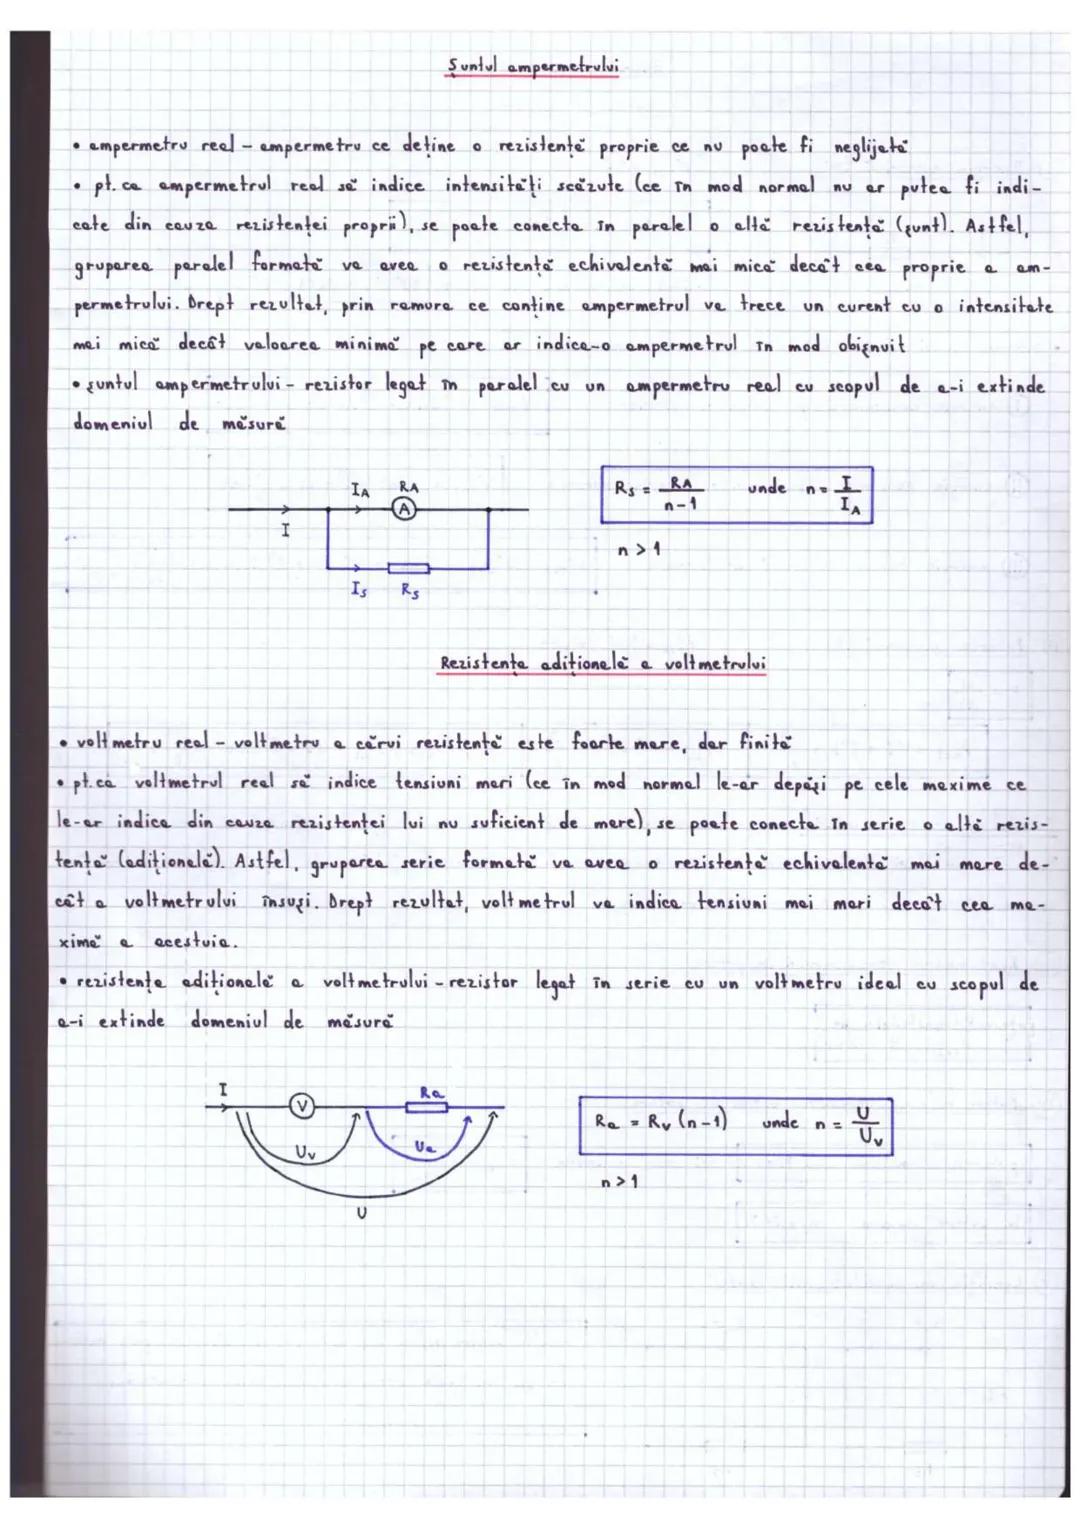 Șuntul ampermetrului
• ampermetru real - ampermetru ce deține o rezistență proprie ce nu poate fi neglijată
• pt. ca ampermetrul real să indice intensități scăzute (ce în mod normal nu ar putea fi indi-
cate din cauza rezistenței proprii), se poate conecta în paralel o altă rezistență (șunt). Astfel,
gruparea paralel formată va avea o rezistență echivalentă mai mică decât cea proprie a am-
permetrului. Drept rezultat, prin ramura ce conține ampermetrul va trece un curent cu o intensitate
mai mică decât valoarea minimă pe care ar indica-o ampermetrul în mod obișnuit
• șuntul ampermetrului - rezistor legat în paralel cu un ampermetru real cu scopul de a-i extinde
domeniul de măsură
I_A R_A
A
I
I_S R_S
R_S = R_A / n-1 unde n = I / I_A
n > 1
Rezistența adițională a voltmetrului
• voltmetru real - voltmetru a cărui rezistență este foarte mare, dar finită
• pt. ca voltmetrul real să indice tensiuni mari (ce în mod normal le-ar depăși pe cele maxime ce
le-ar indica din cauza rezistenței lui nu suficient de mare), se poate conecta în serie o altă rezis-
tență (adițională). Astfel, gruparea serie formată va avea o rezistență echivalentă mai mare de-
cât a voltmetrului însuși. Drept rezultat, voltmetrul va indica tensiuni mai mari decât cea ma-
ximă a acestuia.
• rezistența adițională a voltmetrului - rezistor legat în serie cu un voltmetru ideal cu scopul de
a-i extinde domeniul de măsură
I
V
R_a
U_v
U_a
U
R_a = R_v (n-1) unde n = U / U_v
n > 1